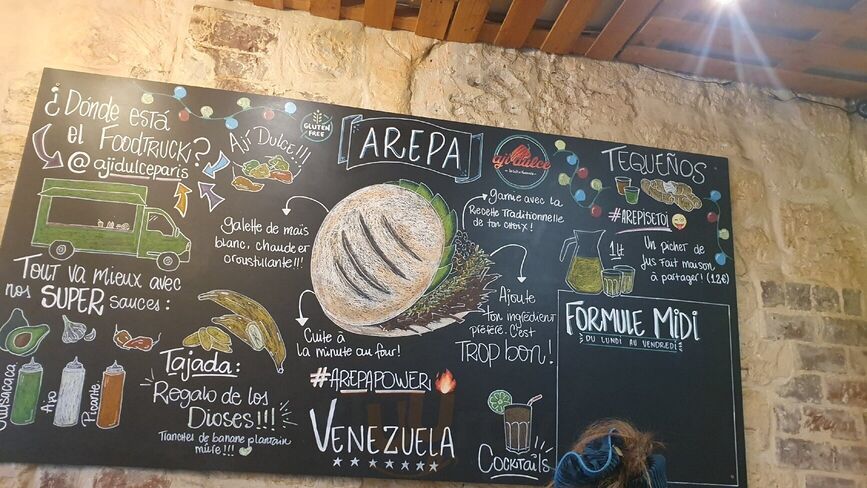 ¿Dónde está
el FoodTruck?
@ajidulceparis
Ají Dulce!!!
GLUTEN
FREE
AREPA
aji dulce
TEQUEÑOS
#AREPISETOI
1lt
Un picher de
jus fait maison
à partager! (12€)
galette de maïs
blanc, chaude et
croustillante!!!
garnie avec la
Recette Traditionnelle
de ton choix!
Ajoute
ton ingrédient
préféré. C'est
TROP bon!
Cuite à
la minute au four!
Tout va mieux avec
nos SUPER sauces:
Guasacaca
Ajo
Picante
Tajada:
Regalo de los
Dioses!!!
Tranches de banane plantain
mûre!!!
#AREPAPOWER
VENEZUELA
Cocktails
FORMULE MIDI
DU LUNDI AU VENDREDI